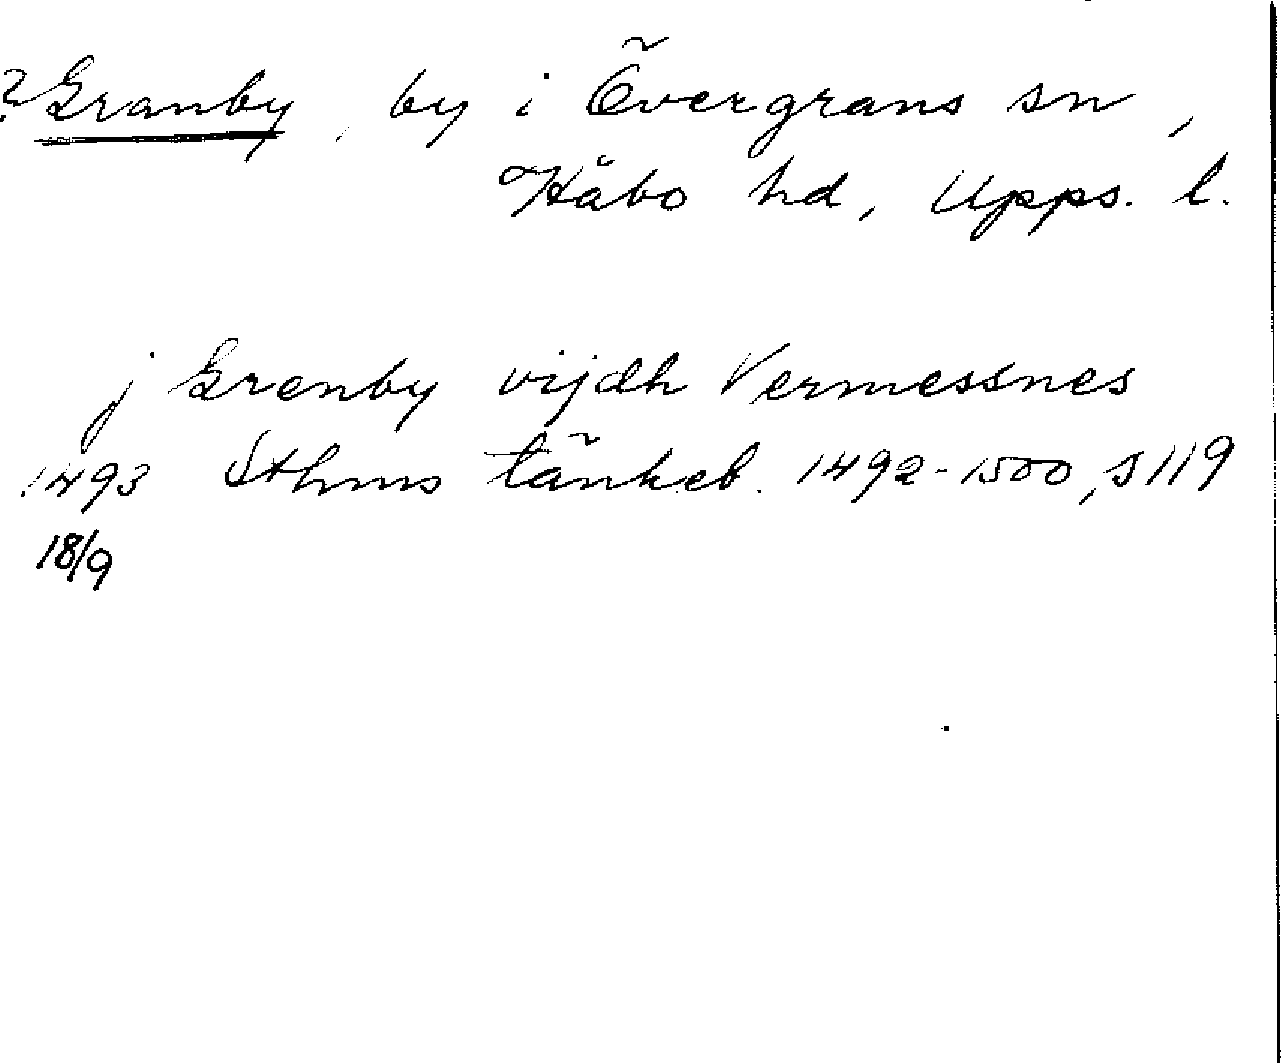 ? Granby, by i Övergrans sn,
Håbo hd, Upps. l.
j Grenby vijdh Vermessnes
1493 Sthms tänkeb. 1492-1500, s 119
18/9